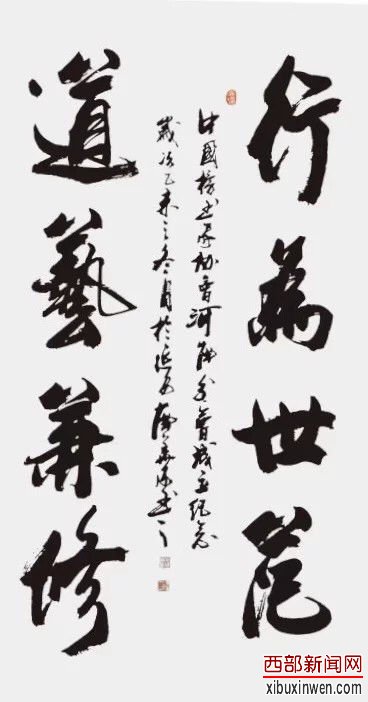 行為世範
道藝兼修
中國榜書家協會河分會成立紀念
歲次乙未之冬月於延安書
西部新闻网
xibuxinwen.com